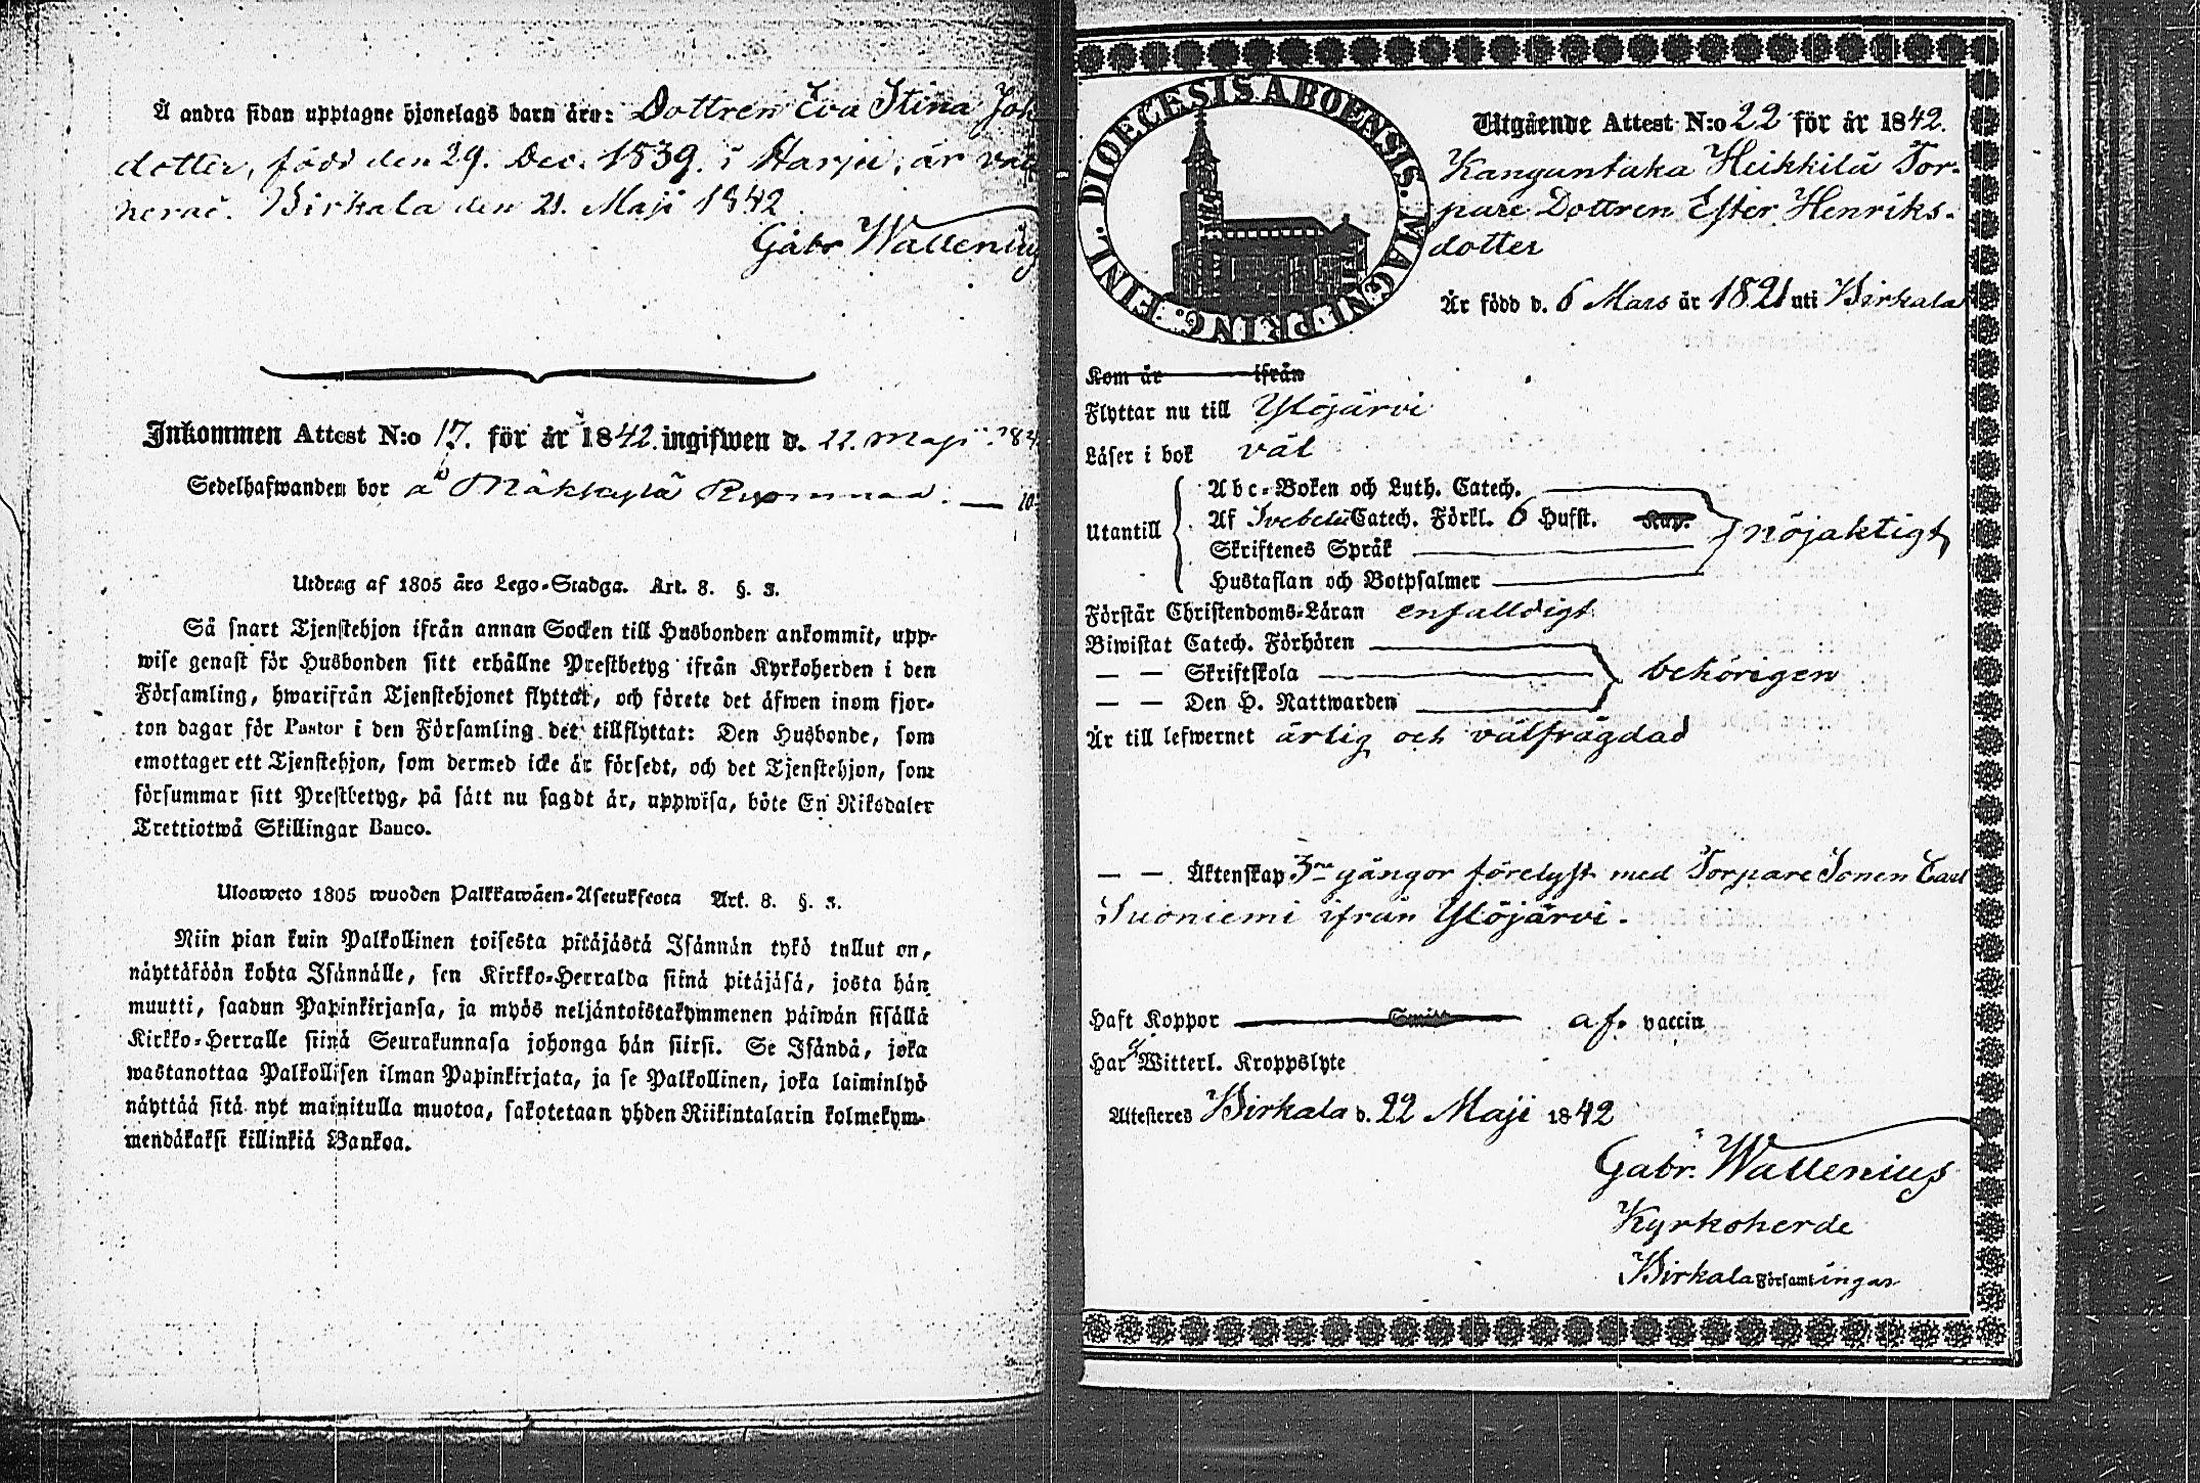 Å andra sidan upptagne hjonelags barn äro: Dottren Eva Stina Joh
dotter, född den 29. Dec. 1839. i Harju, är vac
nerad. Birkala den 21. Maji 1842
Gabr Wallenius
Inkommen Attest N:o 17. för år 1842. ingifwen d. 22. Maji 184
Sedelhafwanden bor å Mäkkylä
Utdrag af 1805 års Lego-Stadga. Art. 8. §. 3.
Så snart Tjenstehjon ifrån annan Socken till Husbonden ankommit, upp-
wise genast för Husbonden sitt erhållne Prestbetyg ifrån Kyrkoherden i den
Församling, hwarifrån Tjenstehjonet flyttat, och förete det äfwen inom fjor-
ton dagar för Pastor i den Församling det tillflyttat: Den Husbonde, som
emottager ett Tjenstehjon, som dermed icke är försedt, och det Tjenstehjon, som
försummar sitt Prestbetyg, på sätt nu sagdt är, uppwisa, böte En Riksdaler
Trettiotwå Skillingar Banco.
Ulosweto 1805 wuoden Palkkawäen-Asetuksesta Art. 8. §. 3.
Niin pian kuin Palkollinen toisesta pitäjästä Isännän tykö tullut on,
näyttäköön kohta Isännälle, sen Kirkko-Herralda siinä pitäjäsä, josta hän
muutti, saadun Papinkirjansa, ja myös neljäntoistakymmenen päiwän sisällä
Kirkko-Herralle siinä Seurakunnasa johonga hän siirsi. Se Isändä, joka
wastanottaa Palkollisen ilman Papinkirjata, ja se Palkollinen, joka laiminlyö
näyttää sitä nyt mainitulla muotoa, sakotetaan yhden Riikintalarin kolmekym-
mendäkaksi killinkiä Bankoa.
DIOECESIS ABOENSIS. MAGNI PRINC. FINL.
Utgående Attest N:o 22 för år 1842.
Kanguntaka Heikkilä Tor-
pare Dottren Ester Henriks-
dotter
Är född d. 6 Mars år 1821 uti Birkala
Kom år ifrån
Flyttar nu till Ylöjärvi
Läser i bok väl
Utantill
Abc-Boken och Luth. Catech.
Af Svebelii Catech. Förkl. 6 Hufst. Kap.
Skriftenes Språk
Hustaflan och Botpsalmer
nöjaktigt
Förstår Christendoms-Läran enfalldigt
Biwistat Catech. Förhören
— — Skriftskola
— — Den H. Nattwarden
behörigen
Är till lefwernet ärlig och välfrägdad
— — Äktenskap 3ne gångor förelyst med Torpare Sonen Carl
Suoniemi ifrån Ylöjärvi.
Haft Koppor Smitt af. vaccin
Har ej Witterl. Kroppslyte
Attesteres Birkala d. 22 Maji 1842
Gabr. Wallenius
Kyrkoherde
Birkala Församlingar